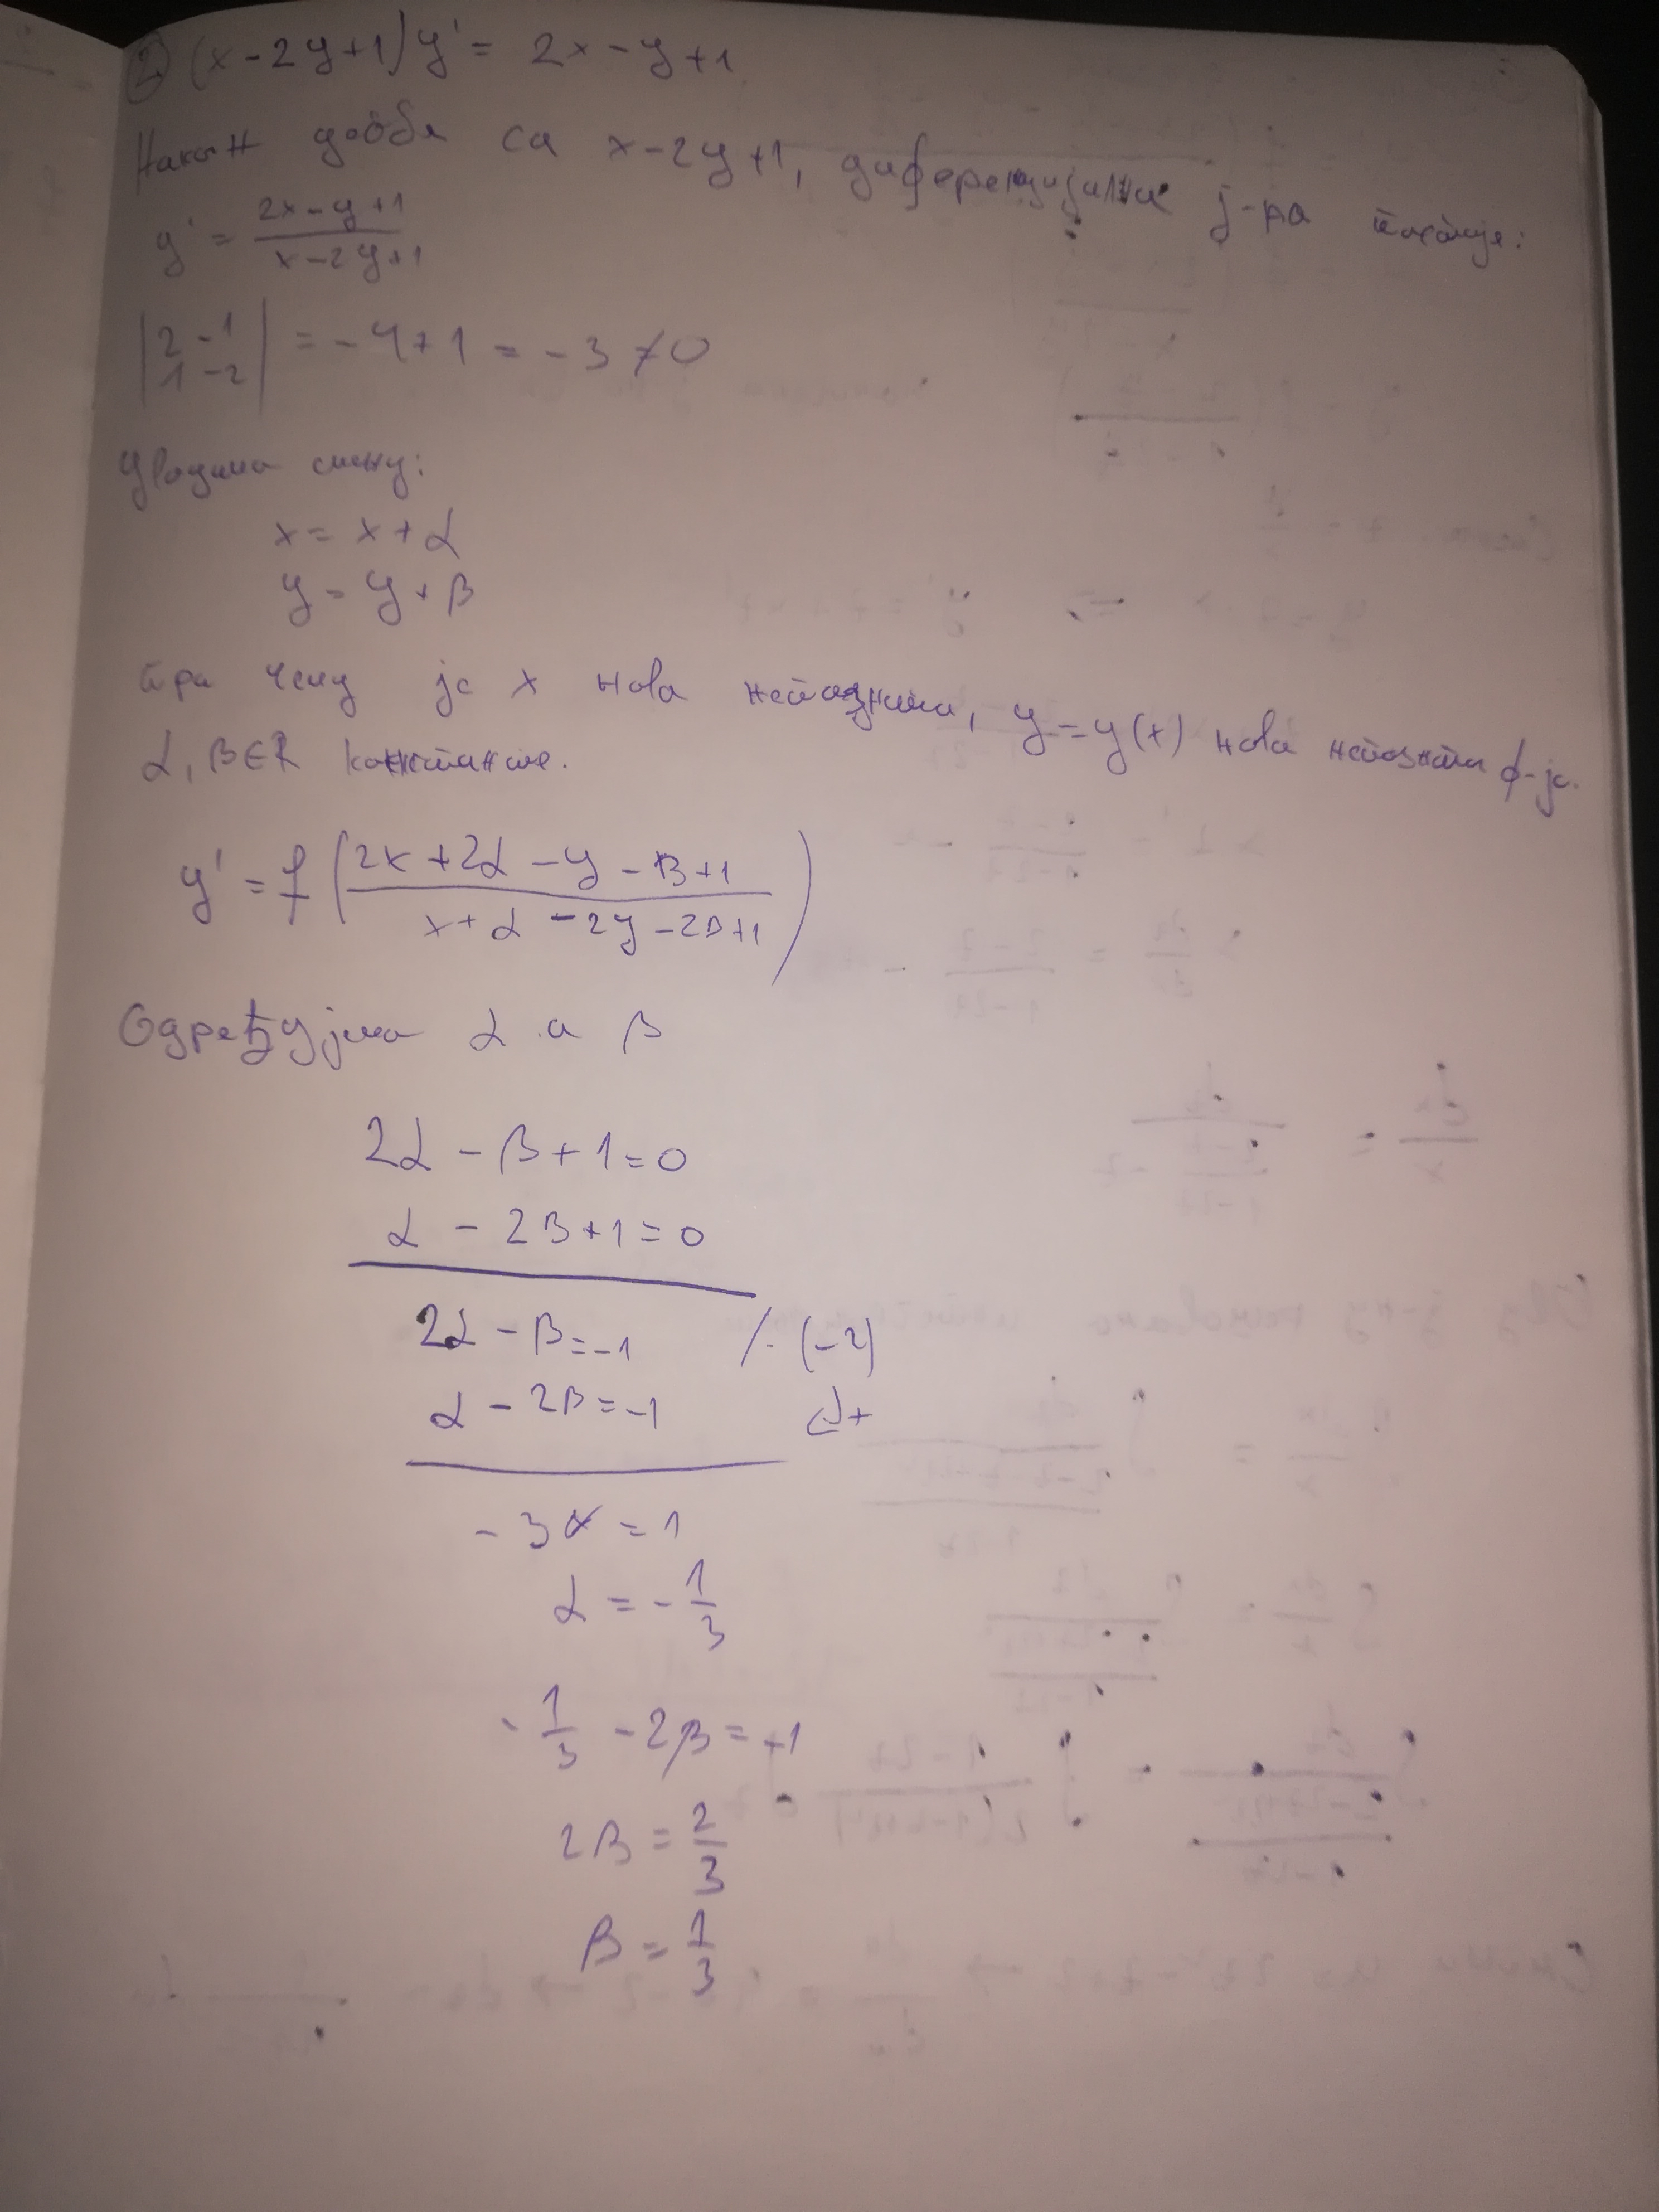 2) (x-2y+1)y' = 2x-y+1
Након деобе са x-2y+1, диференцијална ј-на постаје:
y' = \frac{2x-y+1}{x-2y+1}
\begin{vmatrix} 2 & -1 \\ 1 & -2 \end{vmatrix} = -4+1 = -3 ≠ 0
Уводимо смену:
x = x+α
y = y+β
при чему је x нова непозната, y=y(x) нова непозната ф-ја.
α, β∈R константе.
y' = f \left( \frac{2x+2α-y-β+1}{x+α-2y-2β+1} \right)
Одређујемо α и β
2α - β+1=0
α - 2β+1=0
2α - β=-1 /·(-2)
α - 2β=-1 +
-3α = 1
α = -\frac{1}{3}
-\frac{1}{3} - 2β = -1
2β = \frac{2}{3}
β = \frac{1}{3}